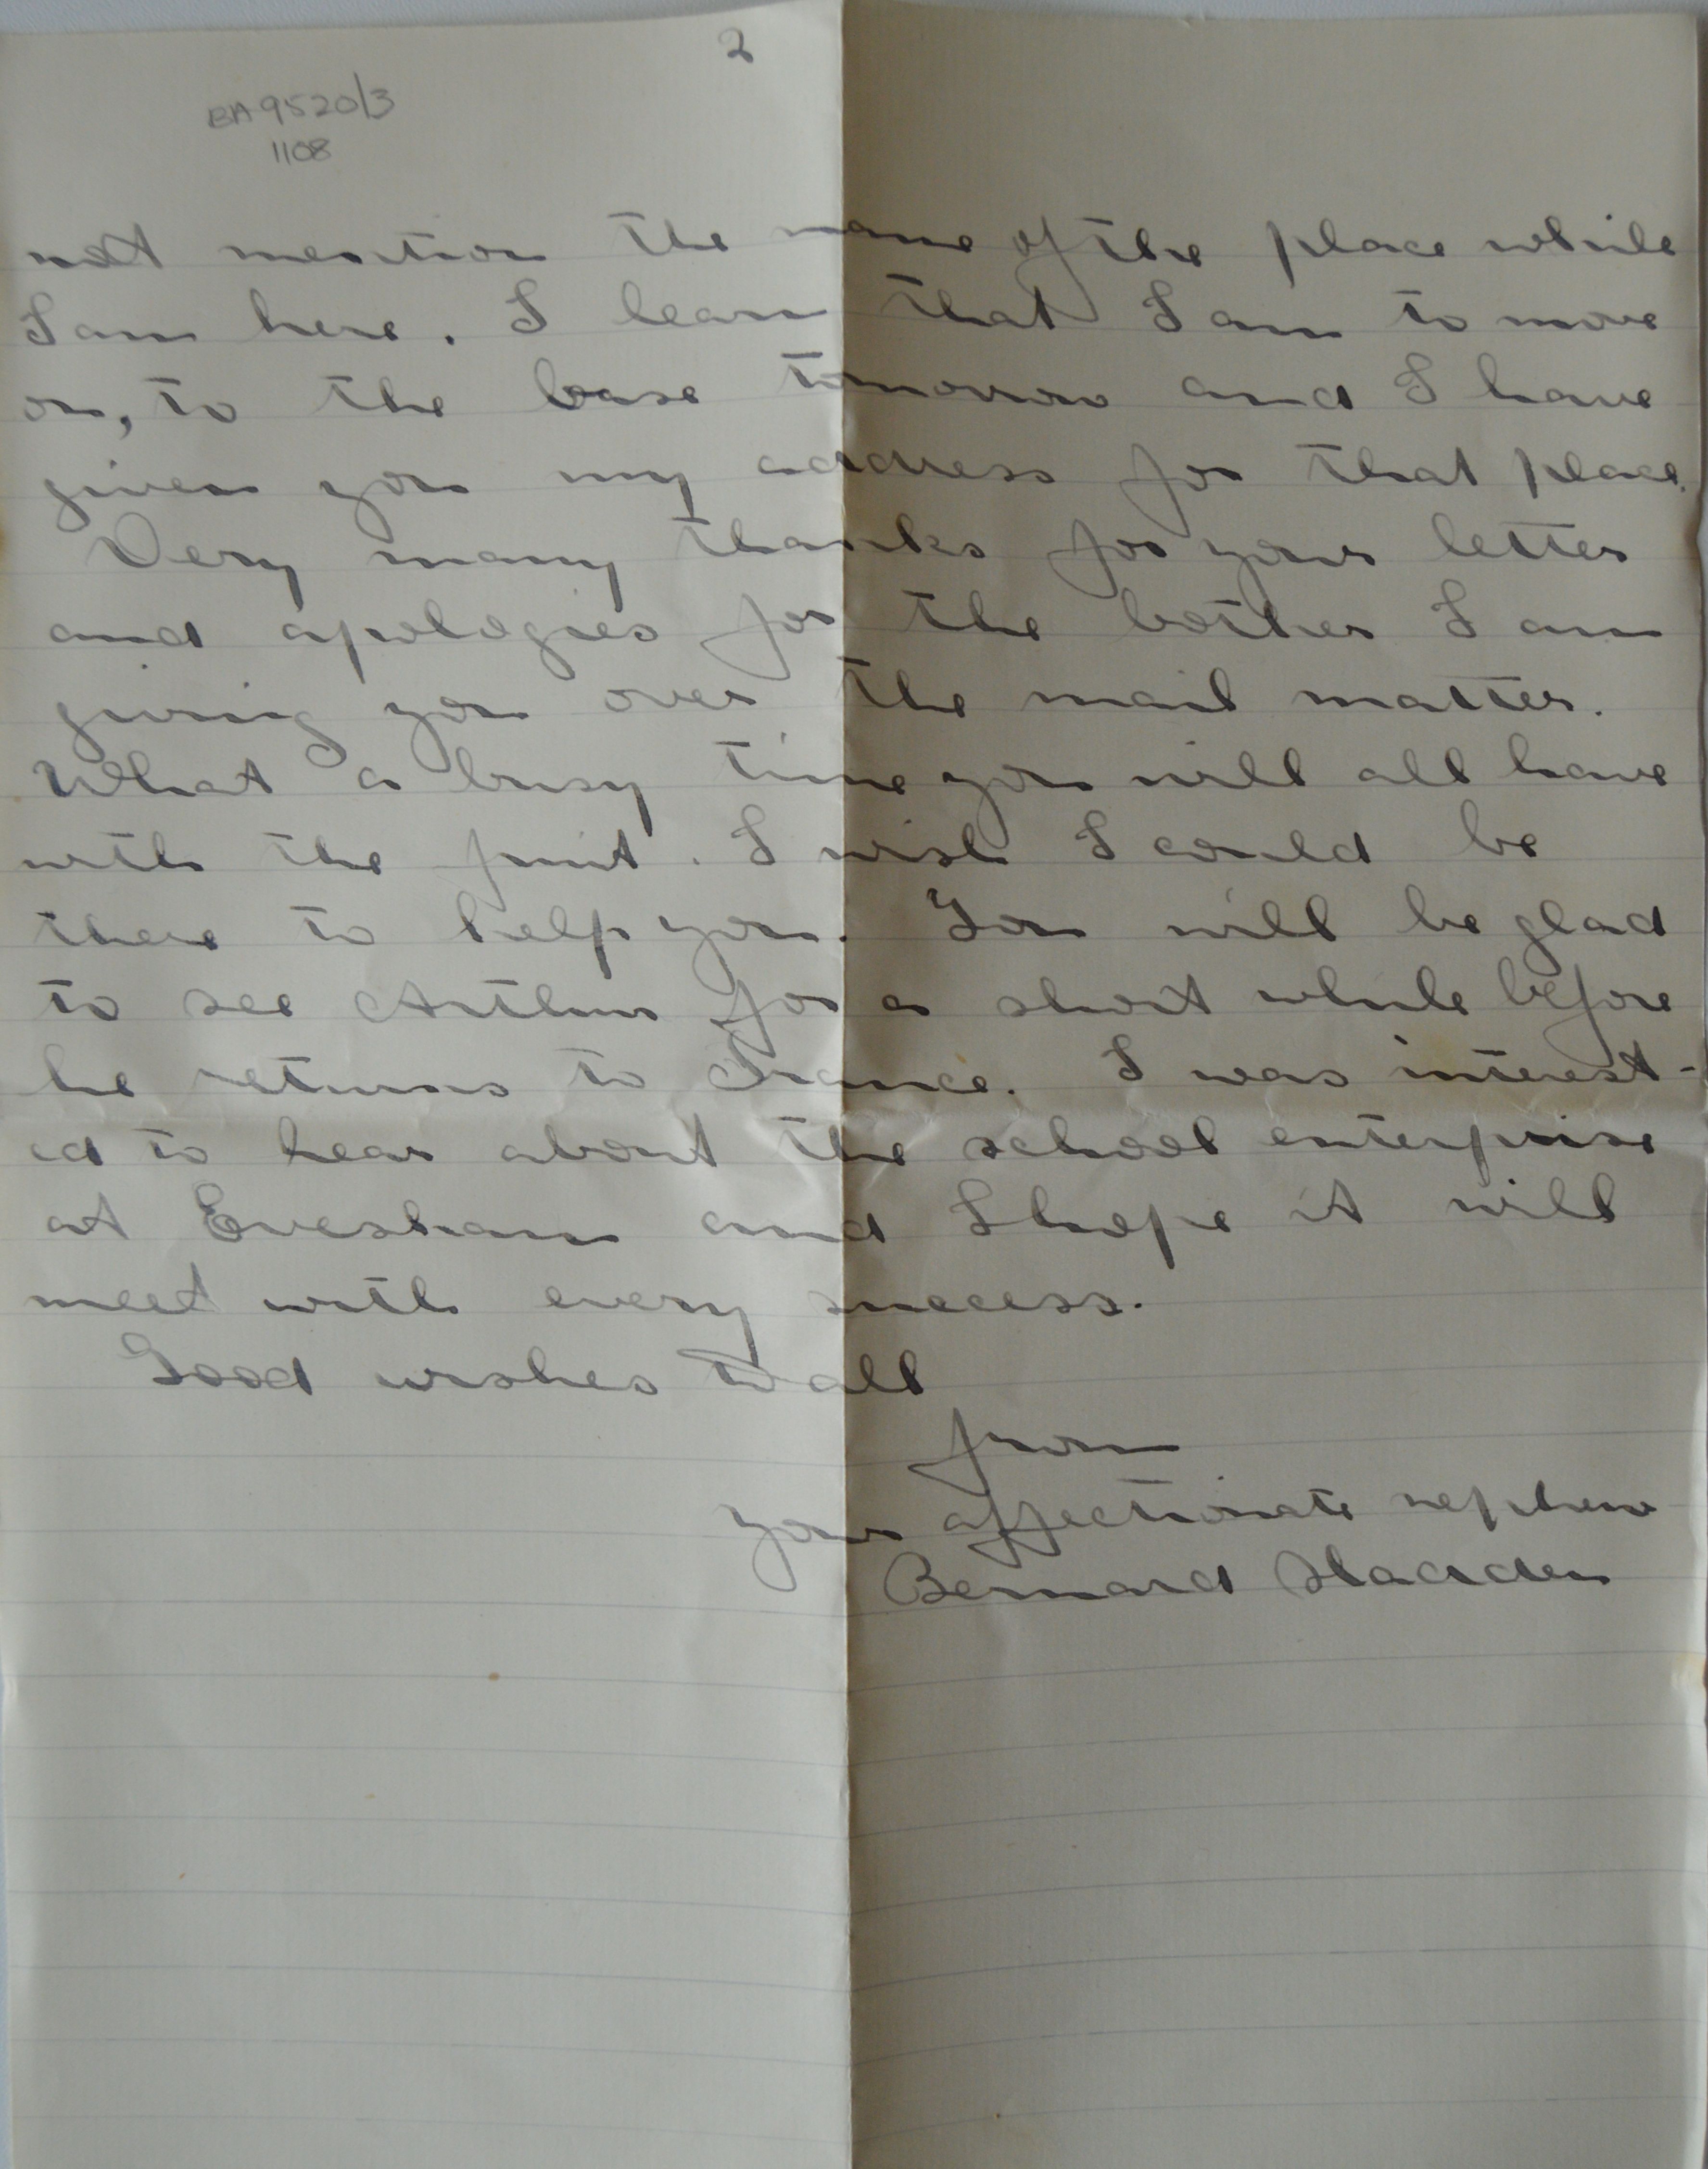 2
BA 9520/3
1108
not mention the name of the place while
I am here. I learn that I am to move
on, to the base tomorrow and I have
given you my address for that place.
Very many thanks for your letter
and apologies for the bother I am
giving you over the mail matter.
What a busy time you will all have
with the fruit. I wish I could be
there to help you. You will be glad
to see Arthur for a short while before
he returns to France. I was interest-
ed to hear about the school enterprise
at Evesham and I hope it will
meet with every success.
Good wishes to all
from
your affectionate nephew
Bernard Sladden